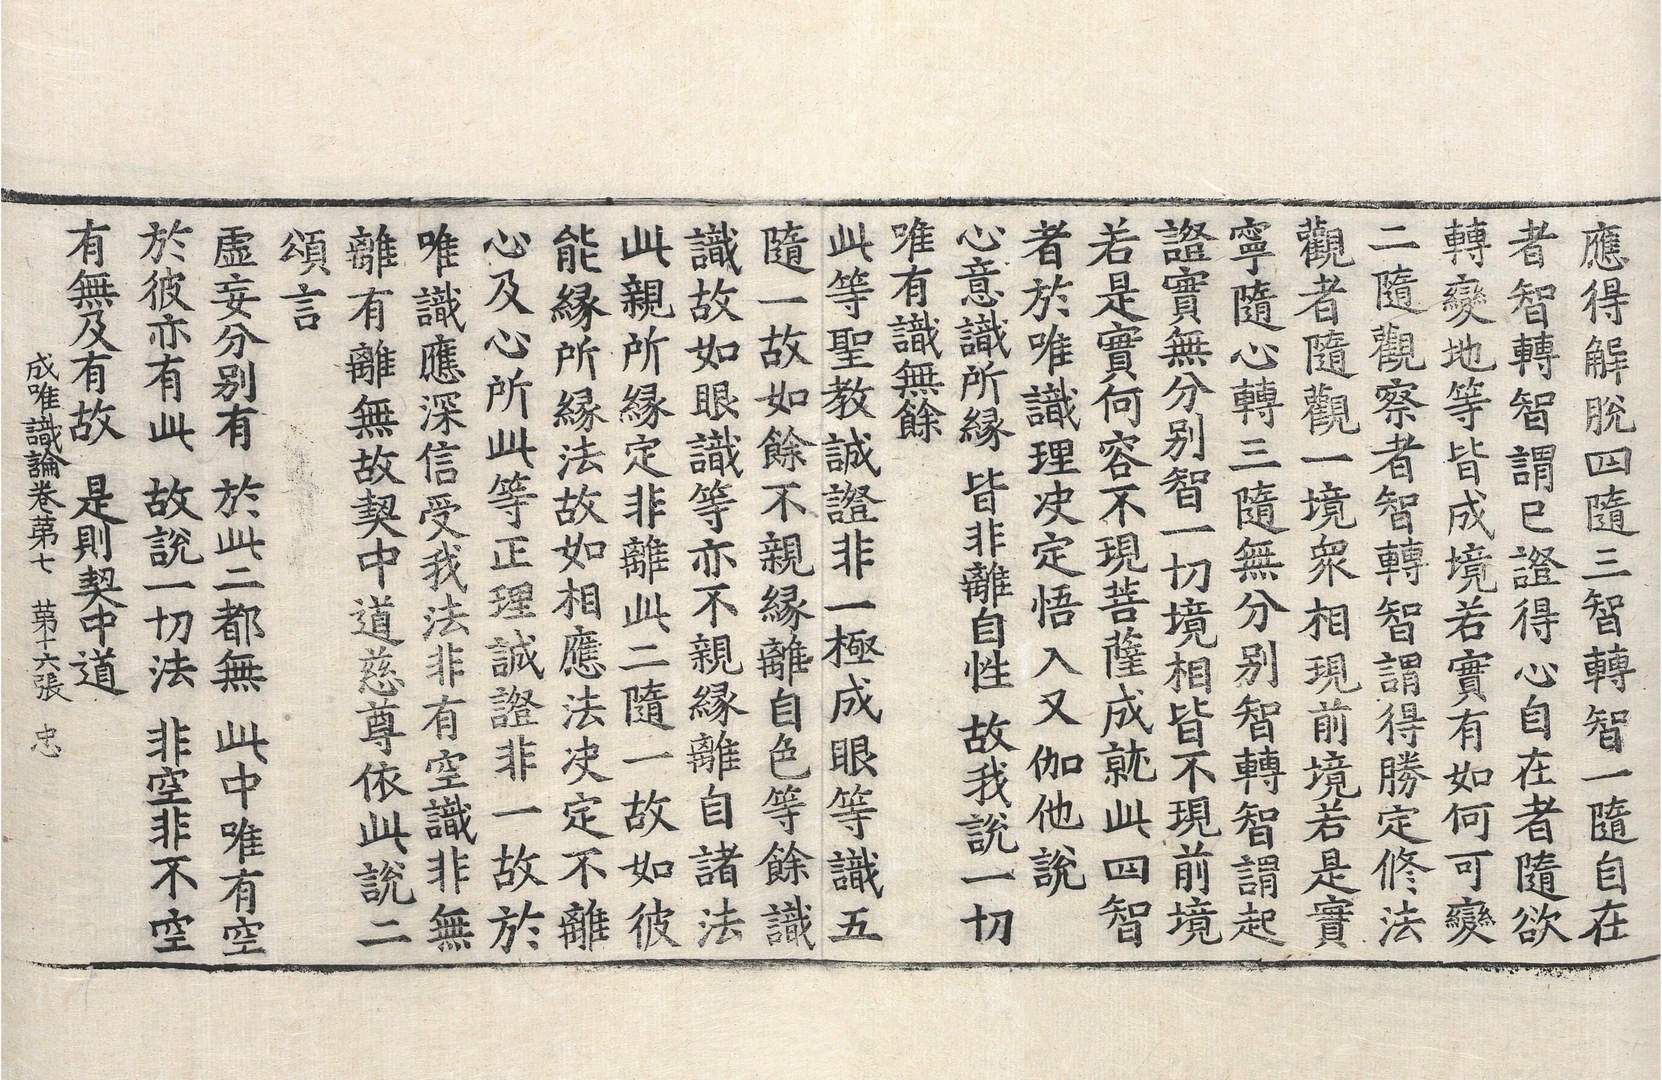 應得解脫四隨三智轉智一隨自在
者智轉智謂已證得心自在者隨欲
轉變地等皆成境若實有如何可變
二隨觀察者智轉智謂得勝定修法
觀者隨觀一境衆相現前境若是實
寧隨心轉三隨無分別智轉智謂起
證實無分別智一切境相皆不現前境
若是實何容不現菩薩成就此四智
者於唯識理決定悟入又伽他說
心意識所緣 皆非離自性 故我說一切
唯有識無餘
此等聖教誠證非一極成眼等識五
隨一故如餘不親緣離自色等餘識
識故如眼識等亦不親緣離自諸法
此親所緣定非離此二隨一故如彼
能緣所緣法故如相應法決定不離
心及心所此等正理誠證非一故於
唯識應深信受我法非有空識非無
離有離無故契中道慈尊依此說二
頌言
虛妄分別有 於此二都無 此中唯有空
於彼亦有此 故說一切法 非空非不空
有無及有故 是則契中道
成唯識論卷第七 第十六張 忠